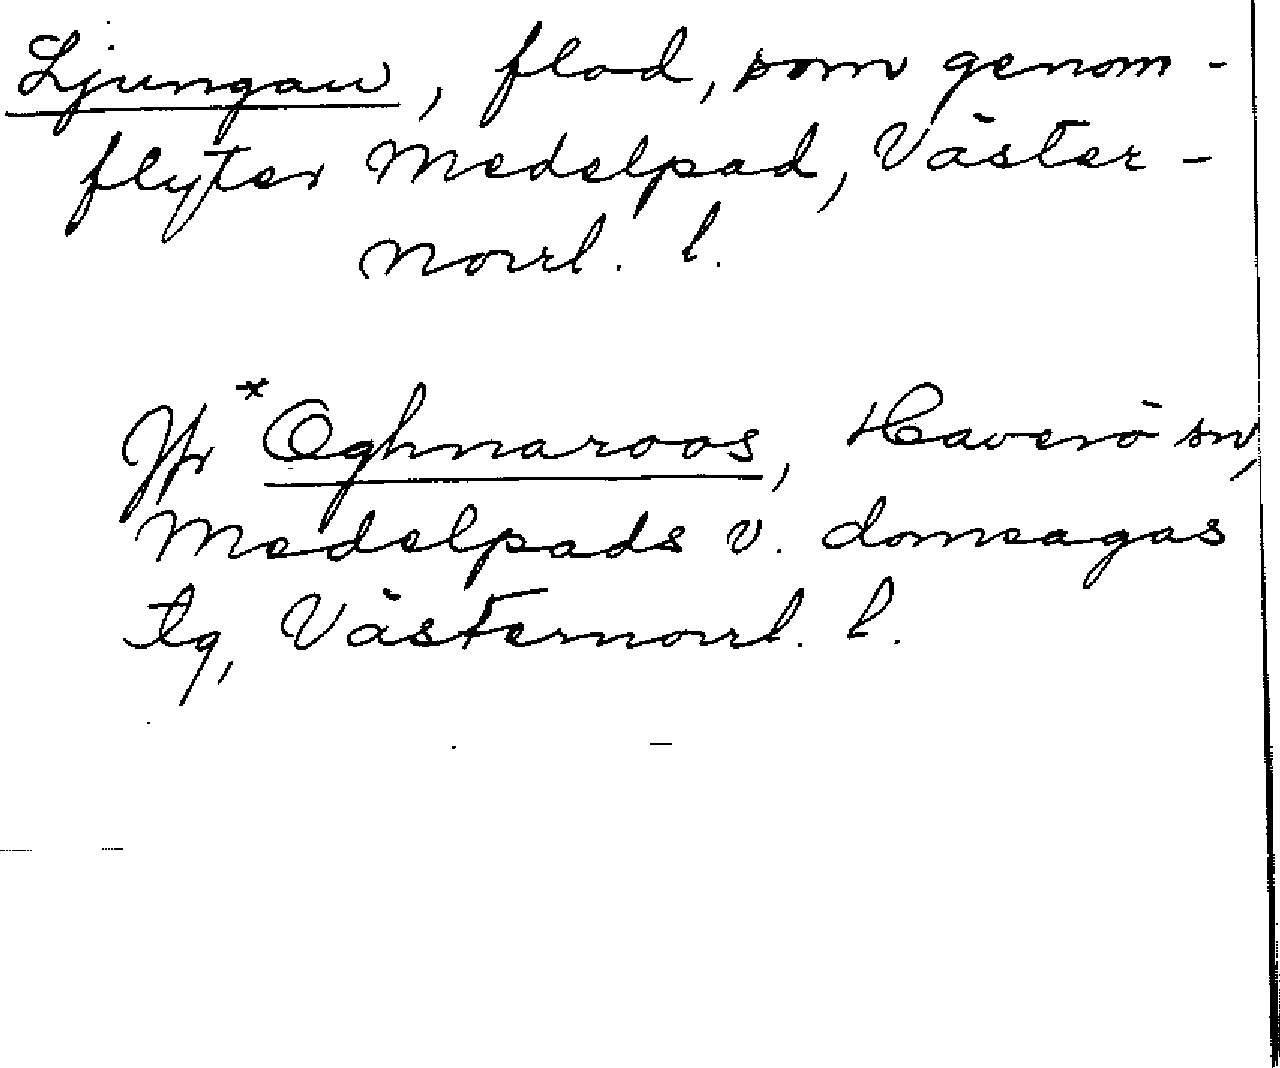 Ljungan, flod, som genom-
flyter Medelpad, Väster-
norrl. l.
Jfr *Oghnaroos, Haverö sn,
Medelpads v. domsagas
tlg, Västernorrl. l.